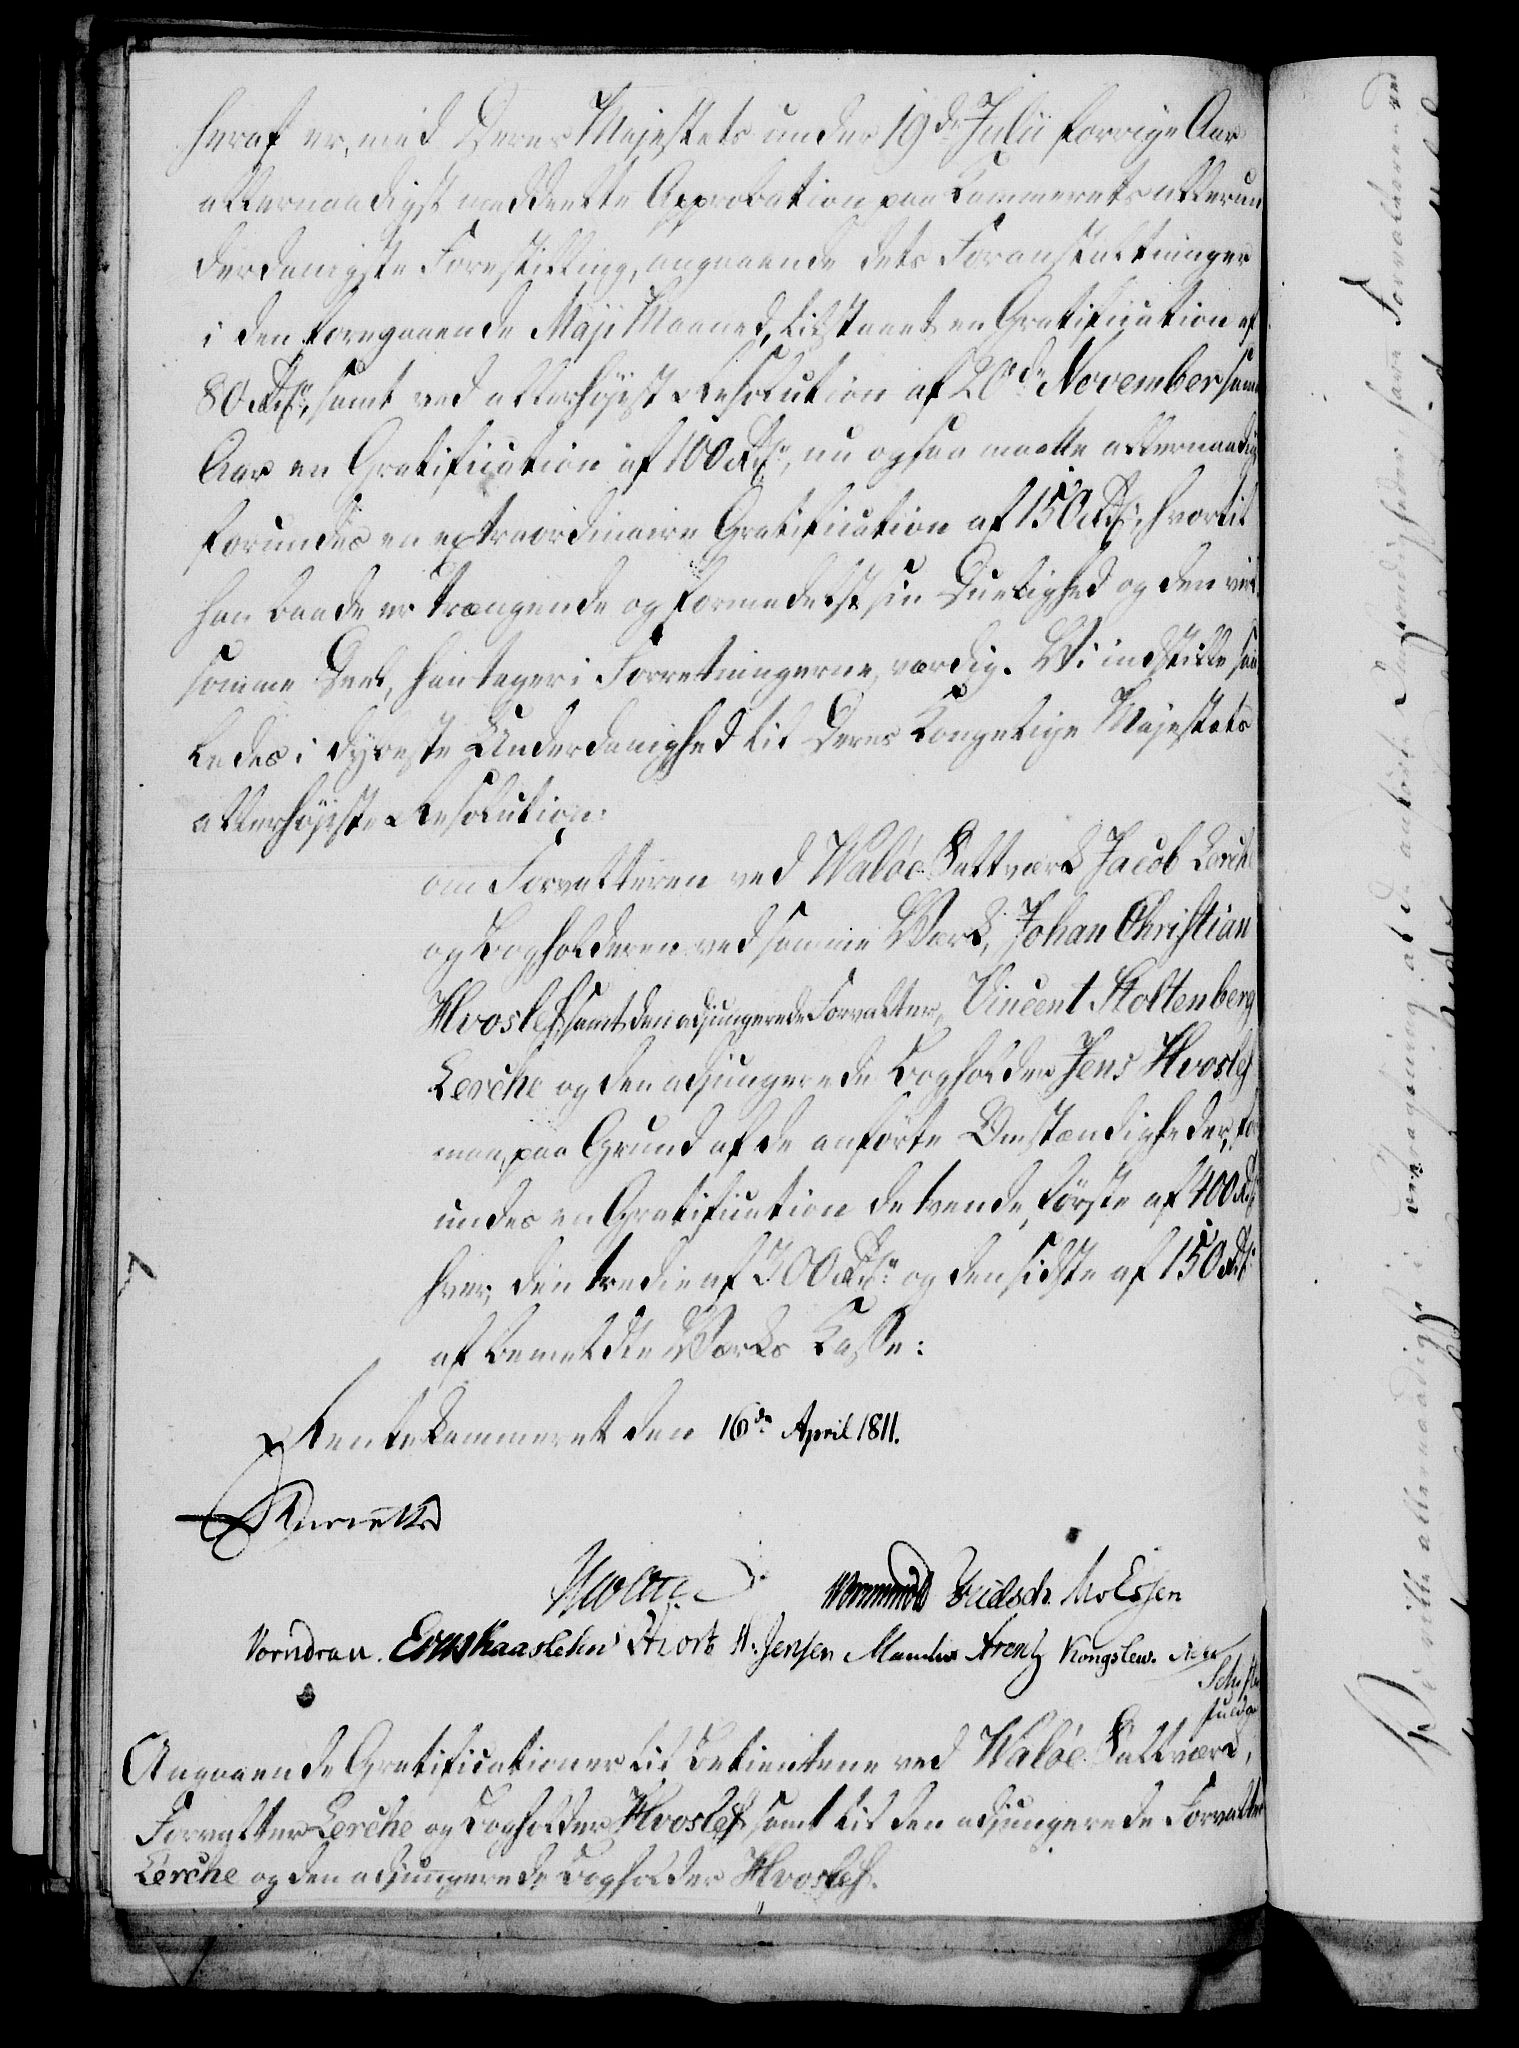 heraf er, med Deres Majestets under 19de Julii forrige Aar
allernaadigst meddeelte Approbation paa Kammerets allerun
derdanigste Forestilling, angaaende dets Foranstaltninger
i den foregaaende Maji Maaned, tilstaaet en Gratification af
80 Rdlr, samt ved allerhøjest Resolution af 20de November samme
Aar en Gratification af 100 Rdlr, nu ogsaa maatte allernaadigst
forundes en extraordinaire Gratification af 150 Rdlr, hvortil
han baade er trængende og formedelst sin Duelighed og den virk
somme Deel, han tager i Forretningerne, værdig. Vi indstille saa
ledes i dybeste Underdanighed til Deres Kongelige Majestets
allerhøjeste Resolution:
om Forvalteren ved Waløe Saltværk Jacob Lerche
og Bogholderen ved samme Værk, Johan Christian
Hvoslef, samt den adjungerede Forvalter, Vincent Stoltenberg
Lerche og den adjungerede Bogholder Jens Hvoslef
maa, paa Grund af de anførte Omstændigheder, for
undes en Gratification de tvende første af 400 Rdlr
hver, den tredie af 300 Rdlr og den sidste af 150 Rdlr
af bemeldte Værks Casse:
Rentekammeret den 16de April 1811.
Wormskiold Fridsch. MvEssen
Vorndran. Hiort H. Jensen Manthei Arentz Kongslew.
Angaaende Gratificationer til Betientene ved Waløe Saltværk,
Forvalter Lerche og Bogholder Hvoslef samt til den adjungerede Forvalter
Lerche og den adjungerede Bogholder Hvoslef.